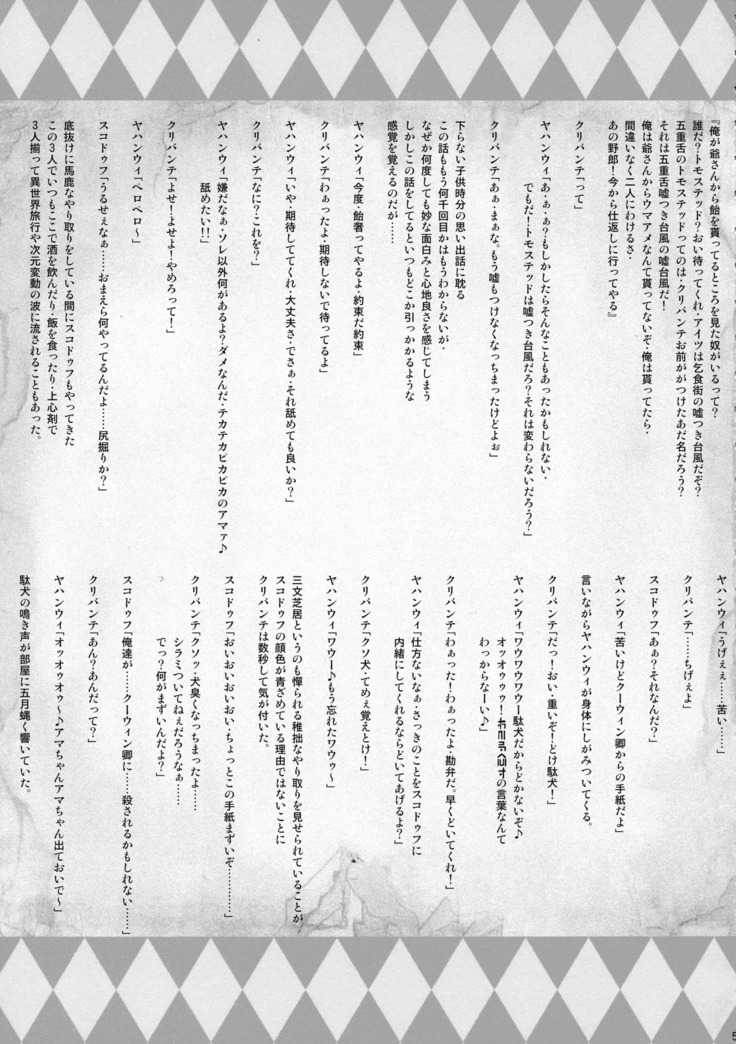 『俺が爺さんから飴を貰ってるところを見た奴がいるって？
誰だ？トモステッド？おい待ってくれ・アイツは乞食街の嘘つき台風だぞ？
五重舌のトモステッドってのは・クリバンテお前ががつけたあだ名だろう？
それは五重舌嘘つき台風の嘘台風だ！
俺は爺さんからウマアメなんて貰ってないぞ・俺は貰ってたら・
間違いなく二人にわけるさ・
あの野郎！今から仕返しに行ってやる』
クリバンテ「って」
ヤハンウィ「あ・ぁ・ぁ？もしかしたらそんなこともあったかもしれない・
でもだ！トモステッドは嘘つき台風だろ？それは変わらないだろう？」
クリバンテ「あぁ・まぁな。もう嘘もつけなくなっちまったけどよぉ」
下らない子供時分の思い出話に耽る
この話ももう何千回目かはもうわからないが・
なぜか何度しても妙な面白みと心地良さを感じてしまう
しかしこの話をしてるといつもどこか引っかかるような
感覚を覚えるのだが……
ヤハンウィ「今度・飴奢ってやるよ・約束だ約束」
クリバンテ「わぁったよ・期待しないで待ってるよ」
ヤハンウィ「いや・期待しててくれ・大丈夫さ・でさぁ・それ舐めても良いか？」
クリバンテ「なに？これを？」
ヤハンウィ「嫌だなぁ・ソレ以外何があるよ？ダメなんだ・テカテカピカピカのアマァ♪
舐めたい！！」
クリバンテ「よせ！よせよ！やめろって！」
ヤハンウィ「ペロペロ〜」
スコドゥフ「うるせぇなぁ……おまえら何やってるんだよ……尻掘りか？」
底抜けに馬鹿なやり取りをしている間にスコドゥフもやってきた
この3人でいつもここで酒を飲んだり・飯を食ったり・上心剤で
3人揃って異世界旅行や次元変動の波に流されることもあった。
ヤハンウィ「うげぇぇ……苦い……」
クリバンテ「……ちげぇよ」
スコドゥフ「あぁ？それなんだ？」
ヤハンウィ「苦いけどクーウィン卿からの手紙だよ」
言いながらヤハンウィが身体にしがみついてくる。
クリバンテ「だっ！おい・重いぞ！どけ駄犬！」
ヤハンウィ「ワウワウワウワー駄犬だからどかないぞ♪
オッオゥゥゥ！の言葉なんて
わっからなーい♪」
クリバンテ「わぁった！わぁったよ・勘弁だ。早くどいてくれ！」
ヤハンウィ「仕方ないなぁ・さっきのことをスコドゥフに
内緒にしてくれるならどいてあげるよ？」
クリバンテ「クソ犬・てめぇ覚えとけ！」
ヤハンウィ「ワウー♪もう忘れたワウゥ〜」
三文芝居というのも憚られる稚拙なやり取りを見せられていることが
スコドゥフの顔色が青ざめている理由ではないことに
クリバンテは数秒して気が付いた。
スコドゥフ「おいおいおいおい・ちょっとこの手紙まずいぞ…………」
クリバンテ「クソッ・犬臭くなっちまったよ……
シラミついてねぇだろうなぁ……
でっ？何がまずいんだよ？」
スコドゥフ「俺達が……クーウィン卿に……殺されるかもしれない……」
クリバンテ「あん？あんだって？」
ヤハンウィ「オッオゥオゥ〜♪アマちゃんアマちゃん出ておいで〜」
駄犬の鳴き声が部屋に五月蝿く響いていた。
5